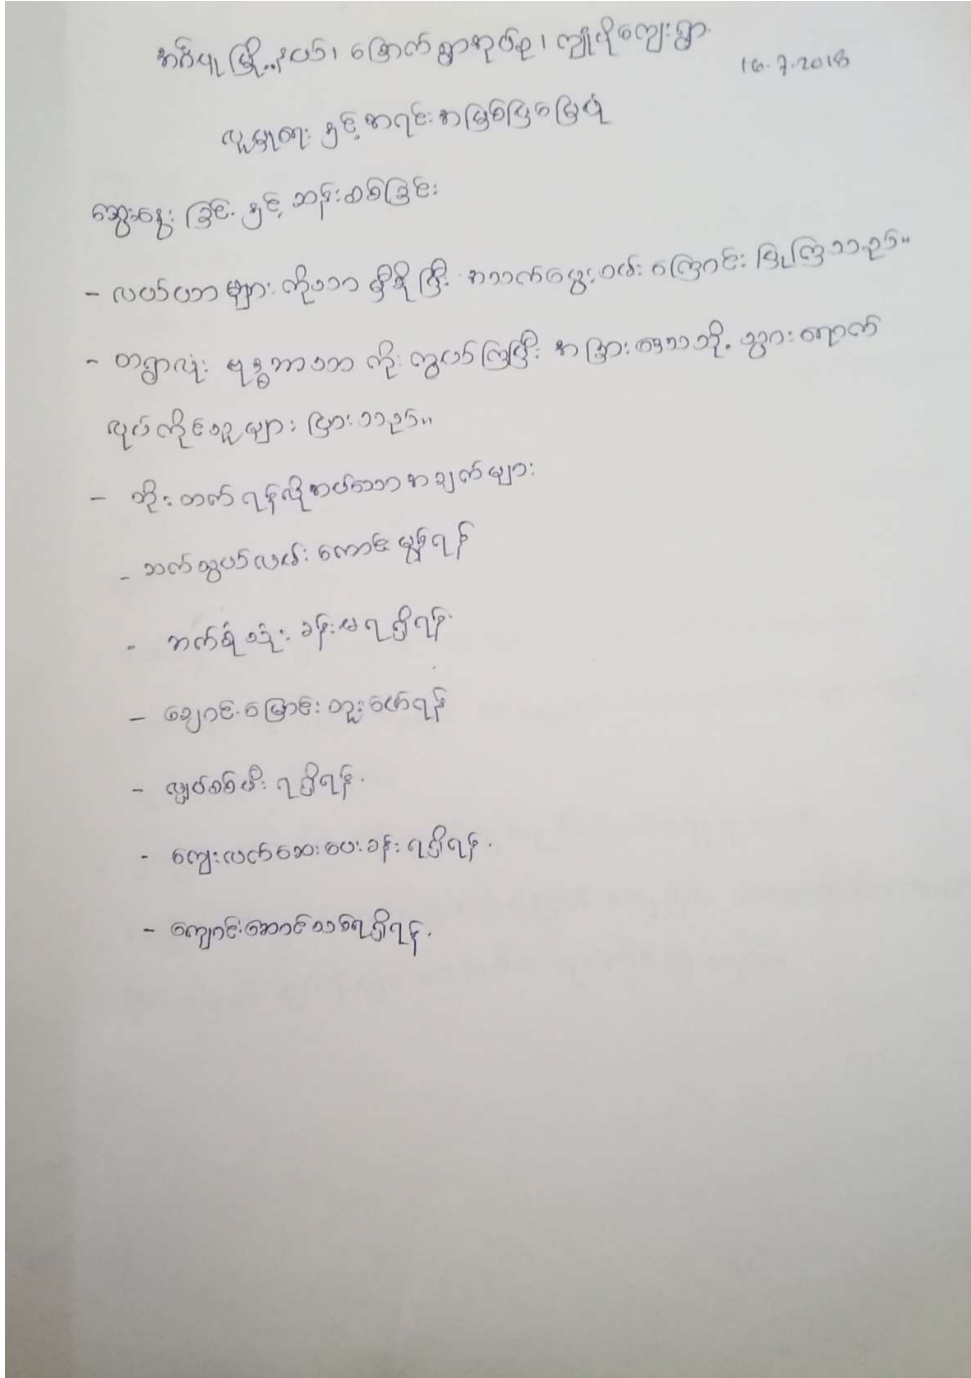 အင်ပု မြို့နယ်၊ မြောက်ရွာအုပ်စု၊ ကျိုပိုကျေးရွာ
16.7.2018
လူမှုရေး နှင့် အရင်းအမြစ်ပြမြေပုံ
ဆွေးနွေး ခြင်း နှင့် ဆန်းစစ်ခြင်း
- လယ်ယာ များ ကိုသာ မှီခို ပြီး အသက်မွေးဝမ်း ကြောင်း ပြုကြသည်။
- တရွာလုံး ဗုဒ္ဓဘာသာ ကိုး ကွယ်ကြပြီး အခြားဒေသသို့ သွားရောက်
လုပ်ကိုင်သူများ များသည်။
- တိုးတက် ရန်လိုအပ်သောအချက်များ
- ဆက်သွယ်လမ်း ကောင်းမွန်ရန်
- ဘက်စုံသုံး ခန်းမ ရရှိရန်
- ချောင်းမြောင်း တူးဖော်ရန်
- လျှပ်စစ်မီး ရရှိရန်.
- ကျေးလက်ဆေးပေးခန်း ရရှိရန်.
- ကျောင်းဆောင်သစ်ရရှိရန်.